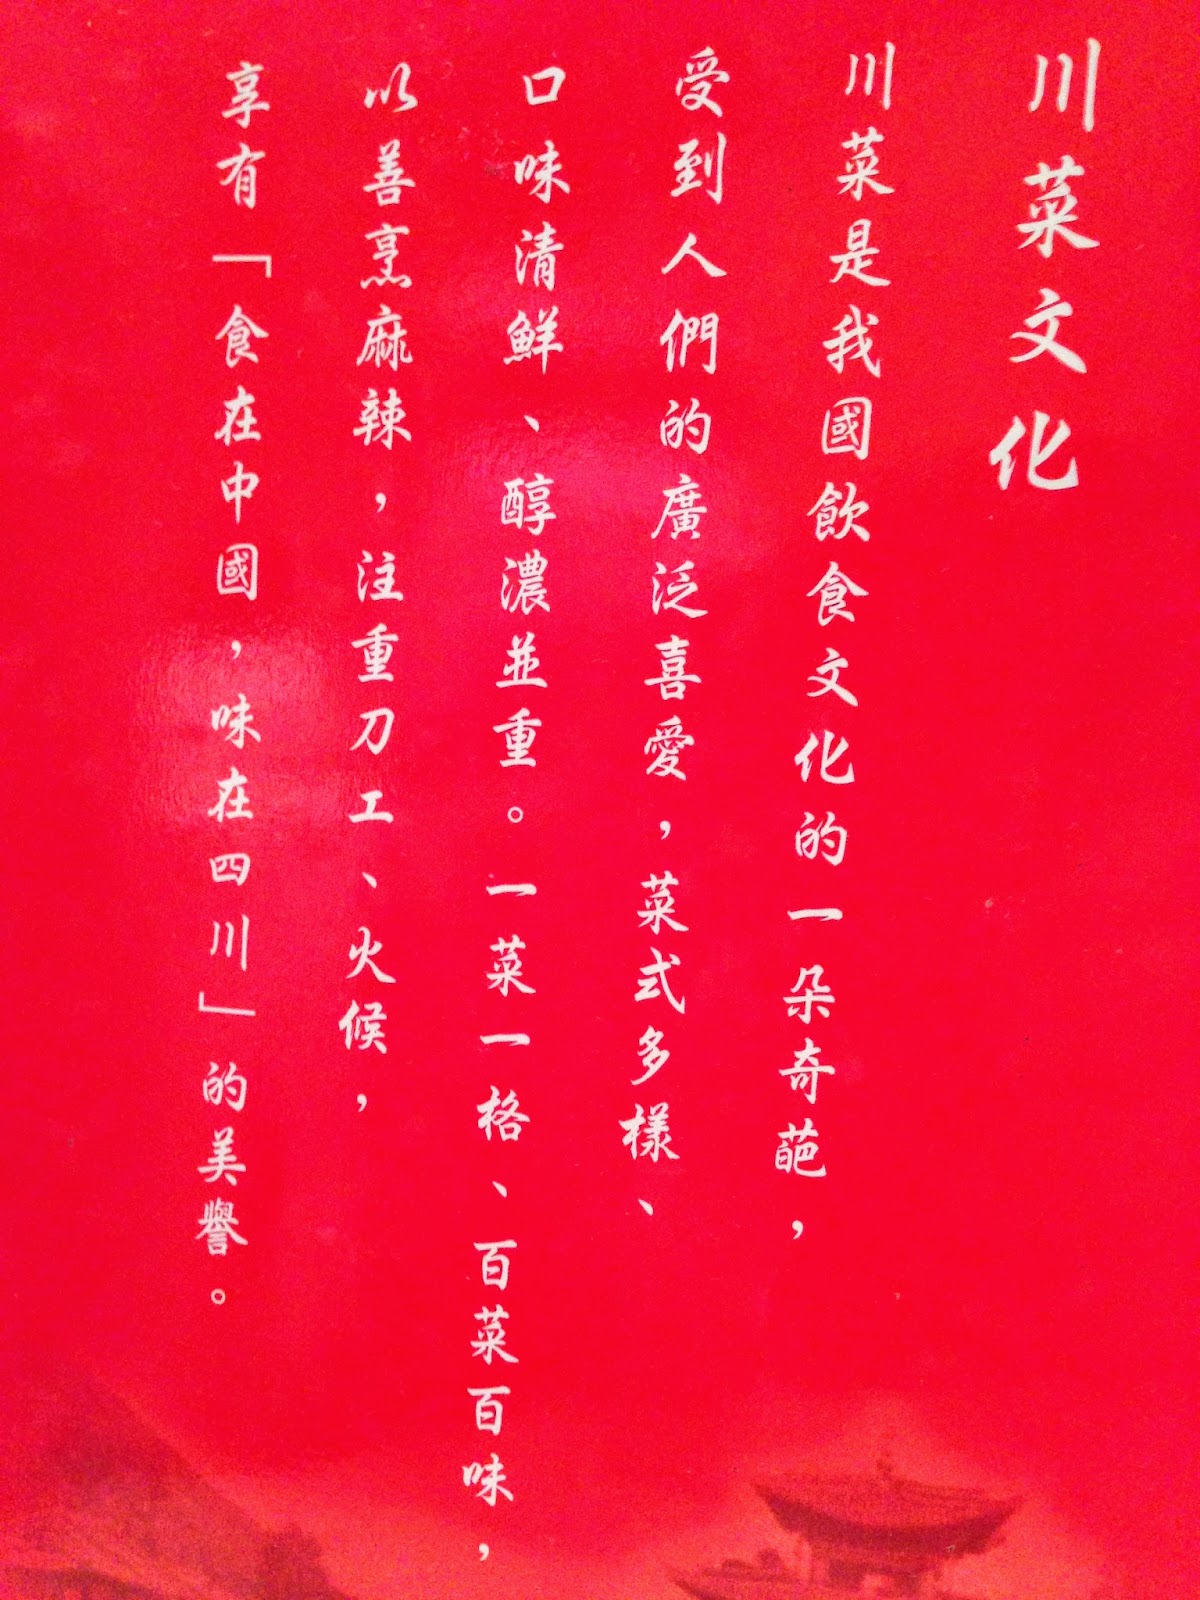 川菜文化
川菜是我國飲食文化的一朵奇葩，
受到人們的廣泛喜愛，菜式多樣、
口味清鮮、醇濃並重。一菜一格、百菜百味，
以善烹麻辣，注重刀工、火候，
享有「食在中國，味在四川」的美譽。